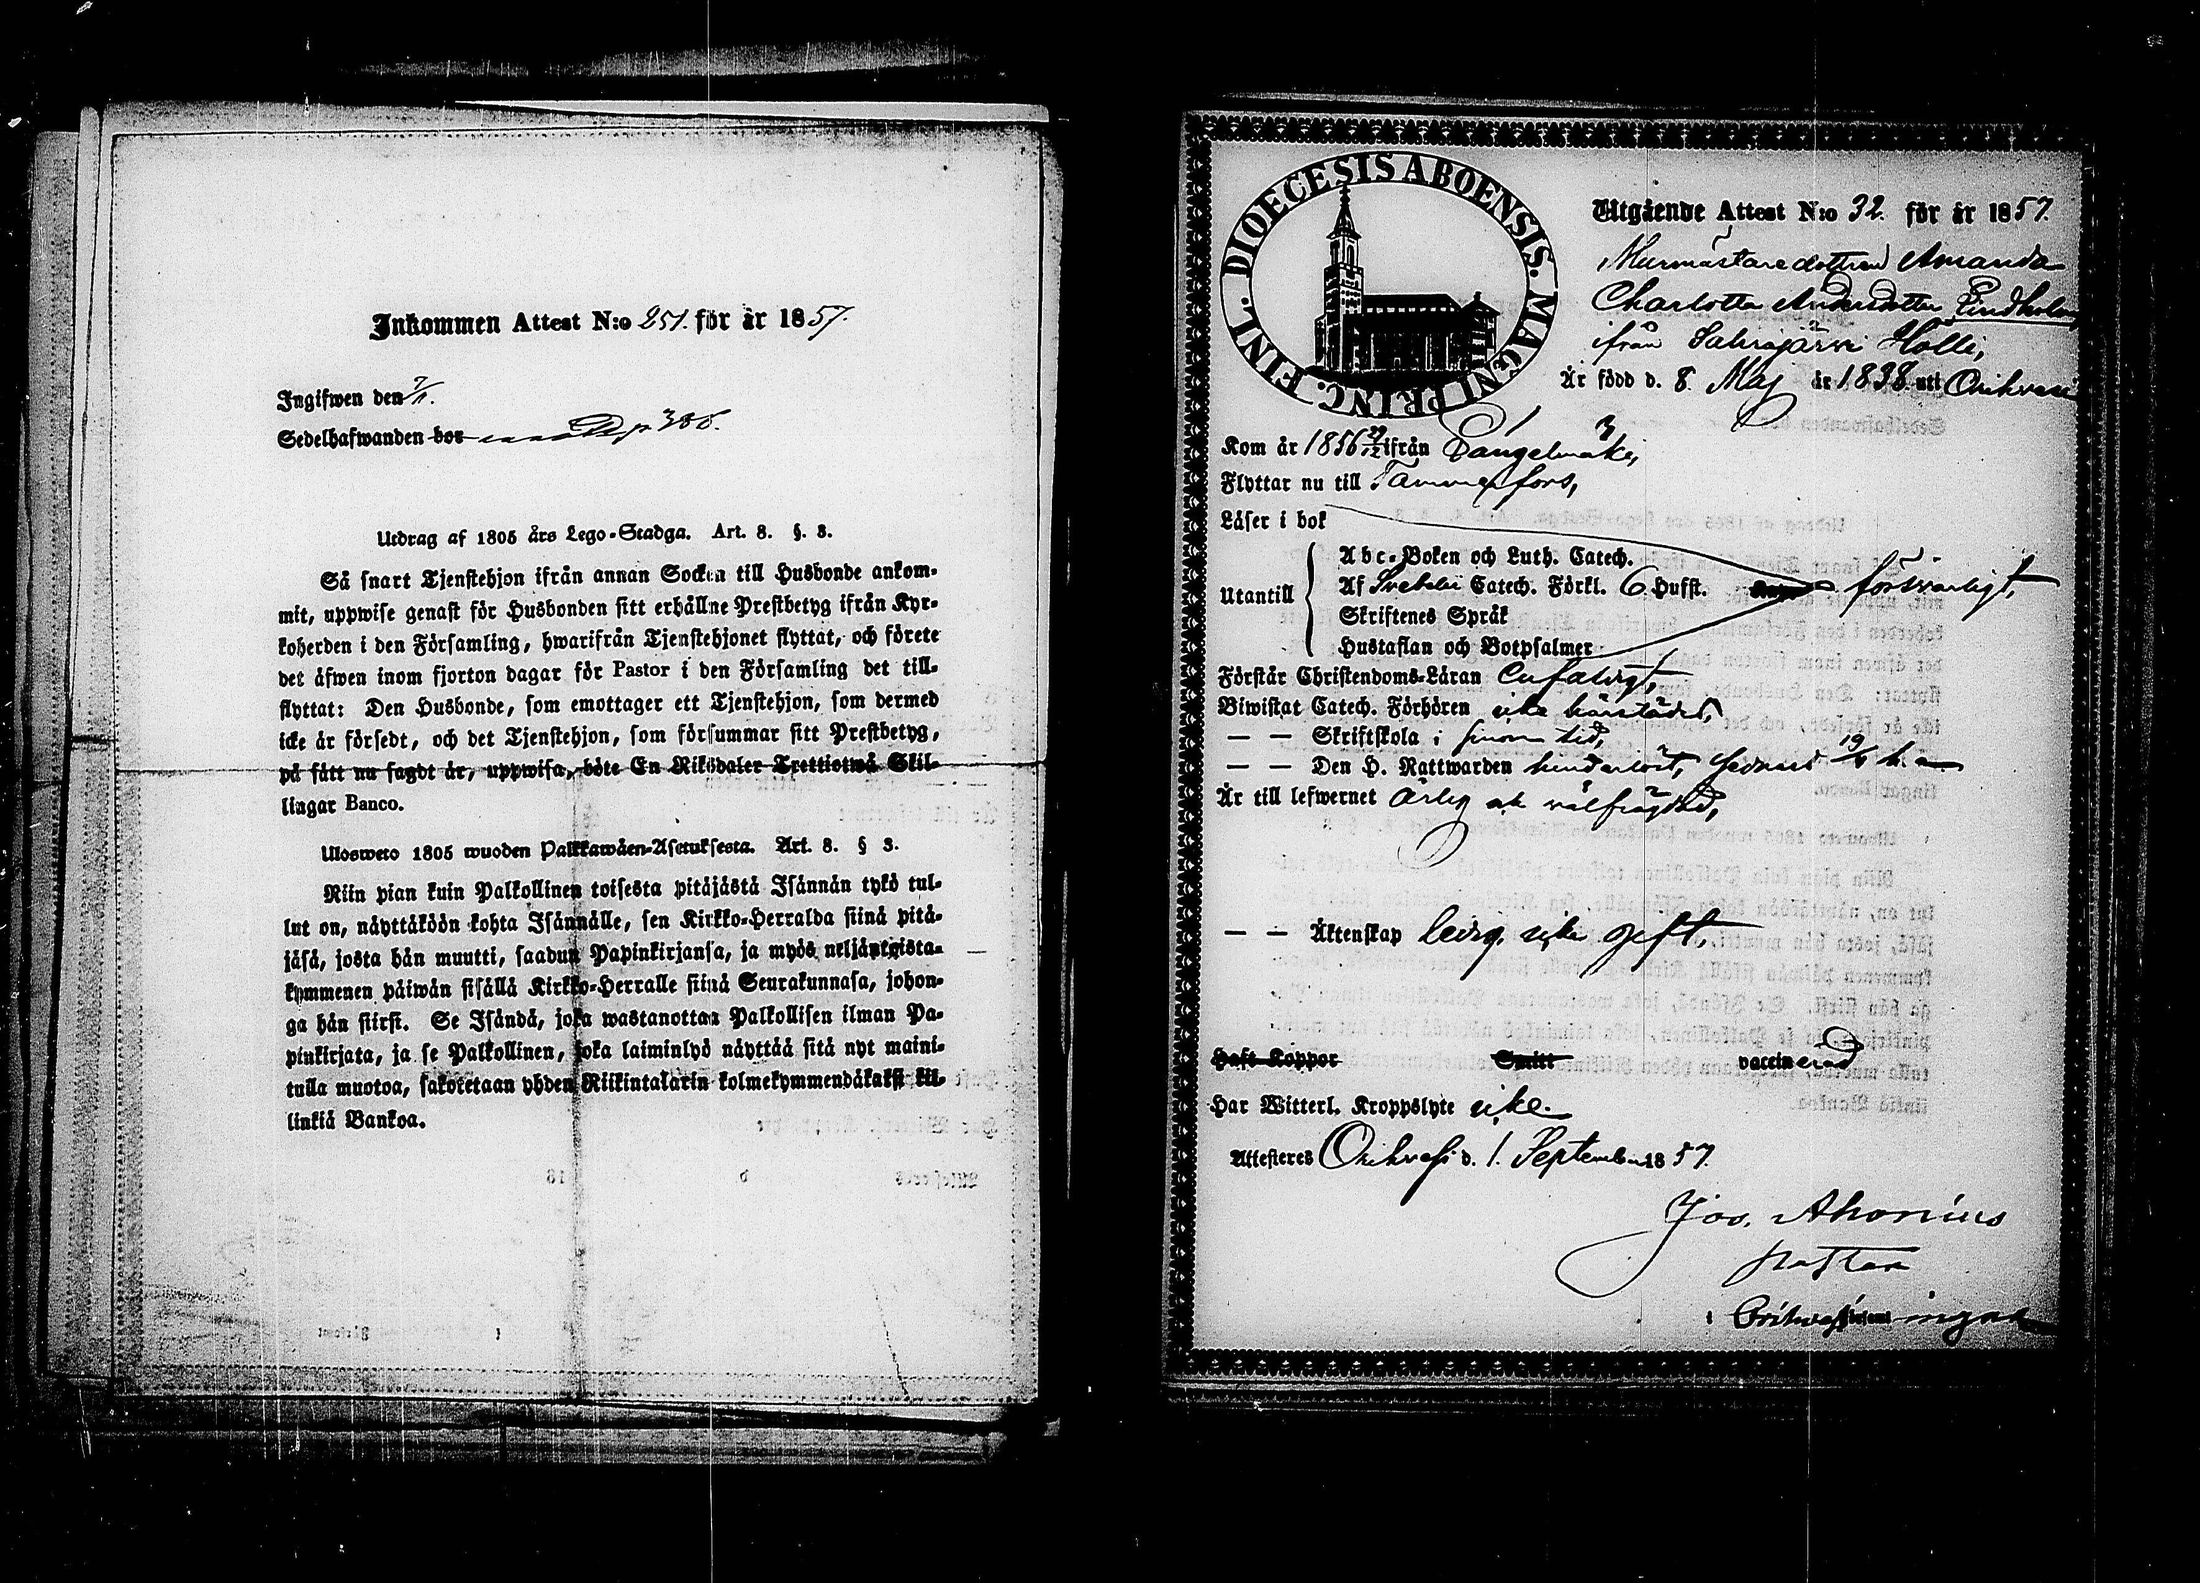 Inkommen Attest N:o 251. för år 1857.
Ingifwen den 7/1.
Sedelhafwanden bor p 388.
Utdrag af 1805 års Lego-Stadga. Art. 8. §. 3.
Så snart Tjenstehjon ifrån annan Socken till Husbonde ankom-
mit, uppwise genast för Husbonden sitt erhållne Prestbetyg ifrån Kyr-
koherden i den Församling, hwarifrån Tjenstehjonet flyttat, och förete
det äfwen inom fjorton dagar för Pastor i den Församling det till-
flyttat: Den Husbonde, som emottager ett Tjenstehjon, som dermed
icke är försedt, och det Tjenstehjon, som försummar sitt Prestbetyg,
på sätt nu sagdt är, uppwisa, böte En Riksdaler Trettiotwå Skil-
lingar Banco.
Ulosweto 1805 wuoden Palkkawäen-Asetuksesta. Art. 8. § 3.
Niin pian kuin Palkollinen toisesta pitäjästä Isännän tykö tul-
lut on, näyttäköön kohta Isännälle, sen Kirkko-Herralda siinä pitä-
jäsä, josta hän muutti, saadun Papinkirjansa, ja myös neljäntoista-
kymmenen päiwän sisällä Kirkko-Herralle siinä Seurakunnasa, johon-
ga hän siirsi. Se Isändä, joka wastanottaa Palkollisen ilman Pa-
pinkirjata, ja se Palkollinen, joka laiminlyö näyttää sitä nyt maini-
tulla muotoa, sakotetaan yhden Riikintalarin kolmekymmendäkaksi kil-
linkiä Bankoa.
DIOECESIS ABOENSIS. MAGNI PRINC. FINL.
Utgående Attest N:o 32. för år 1857.
Murmästaredottren Amanda
Charlotta Andersdotter Lindholm
ifrån Sahrajärvi Holli,
Är född d. 8 Maj år 1838 uti Orihvesi
Kom år 1856 29/12 ifrån Längelmäki,
Flyttar nu till Tammerfors,
Läser i bok
Utantill
Abc-Boken och Luth. Catech.
Af Svebelii Catech. Förkl. 6 Hufst. försvarligt,
Skriftenes Språk
Hustaflan och Botpsalmer
Förstår Christendoms-Läran enfaldigt,
Biwistat Catech. Förhören icke härstädes,
— — Skriftskola i sinom tid,
— — Den H. Nattwarden hinderlöst, senast 19/4 h. a.
Är till lefwernet ärlig och välfrägdad,
— — Äktenskap ledig, icke gift.
Haft Koppor Smitt vaccinerad
Har Witterl. Kroppslyte icke.
Attesteres Orihvesi d. 1. September 1857.
Jos. Ahonius
Pastor
i Orihvesi